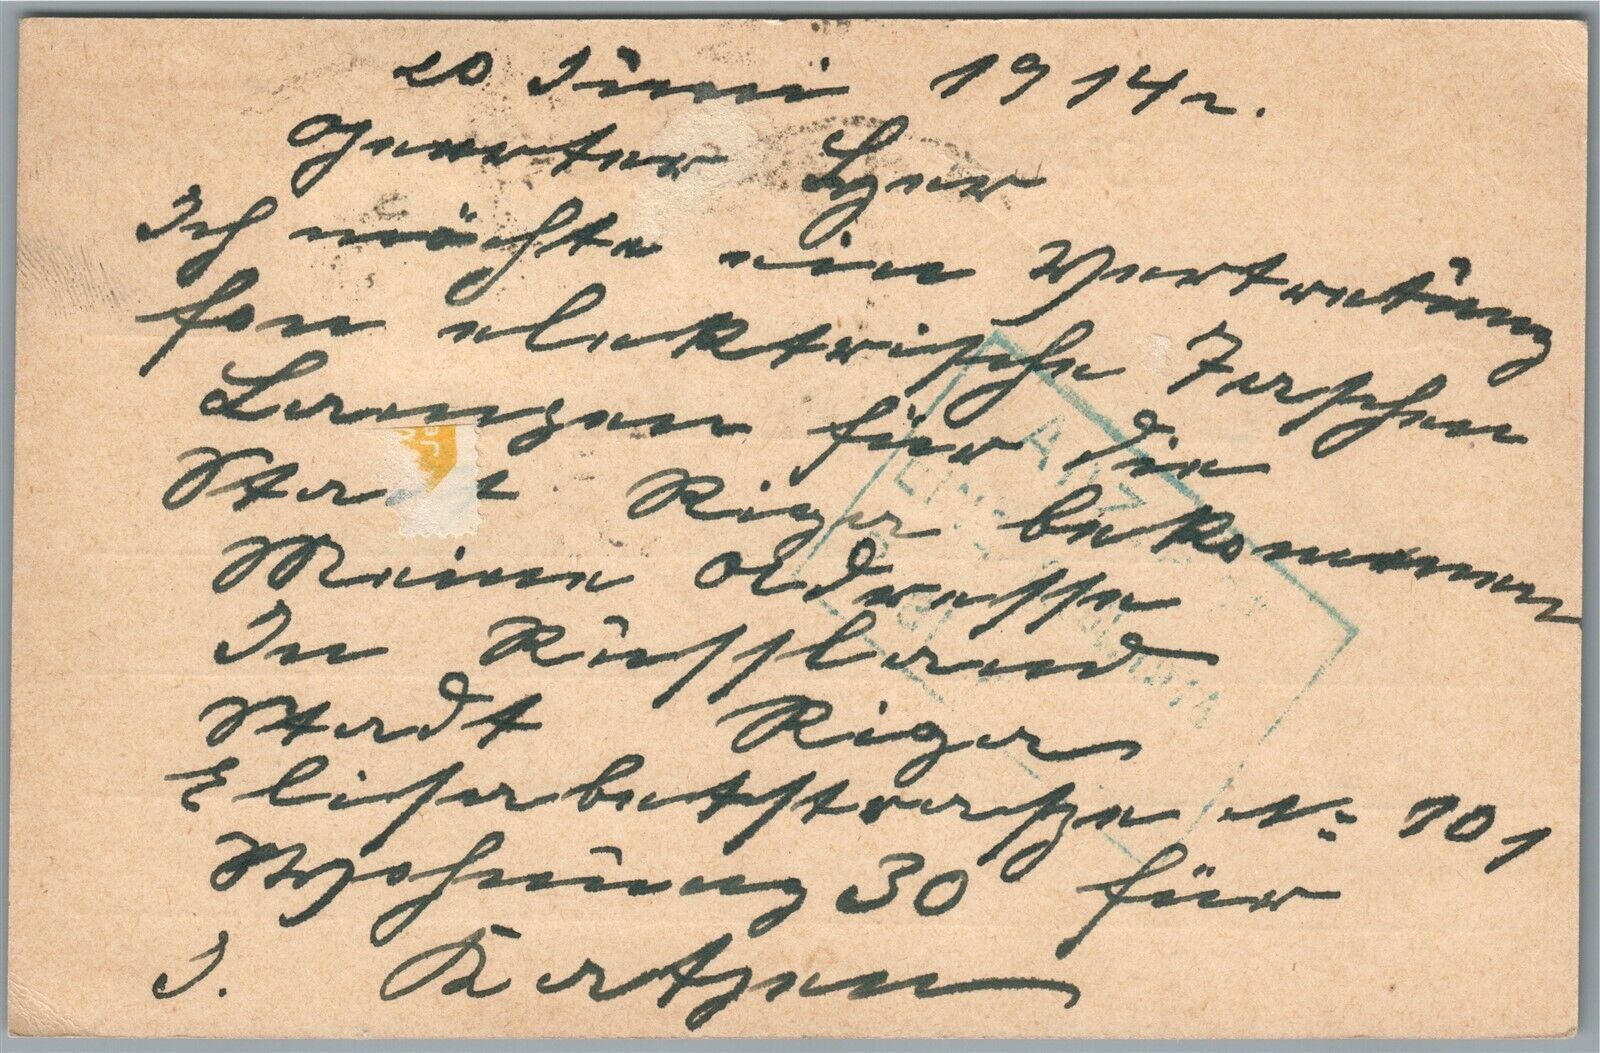 20 Juni 1914 r.
Geerter Herr
Ich möchte ein Vertretung
fon elektrische Taschen
Lampen für die
Stadt Riga bekommen
Meine Adresse
In Russland
Stadt Riga
Elisabetstrasse No 101
Wohnung 30 für
J. Katzen